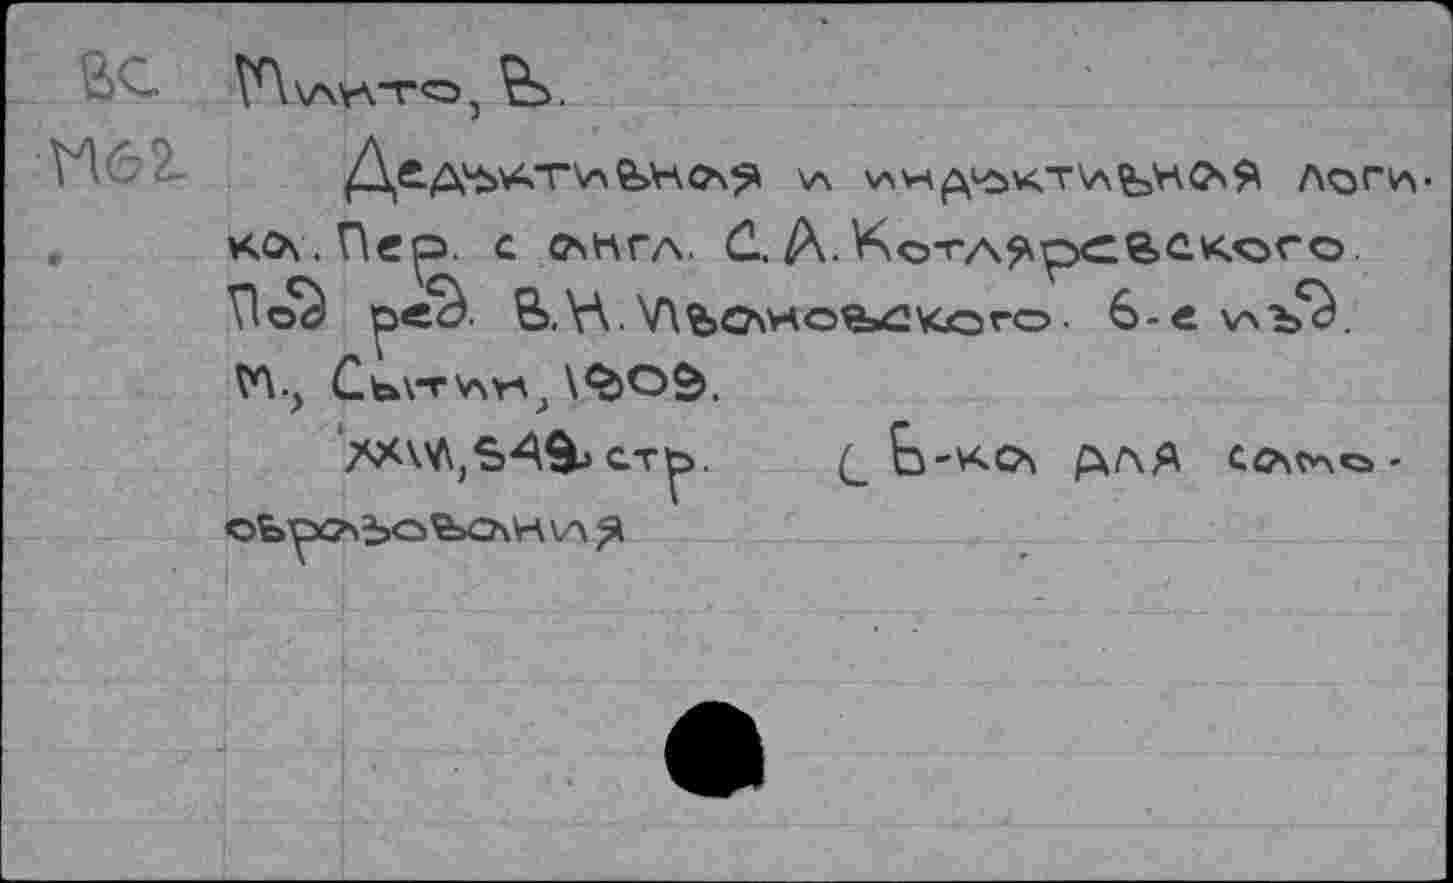 ВС Минто, В.
М62 Дедуктивная и индуктивная логи-
ка. Пер. с англ. С. А. Котляревского.
Под ред. В. Н. Ивановского. 6-е изд.
М., Сытин, 1909.
стр. ( Б-ка для само-
образования